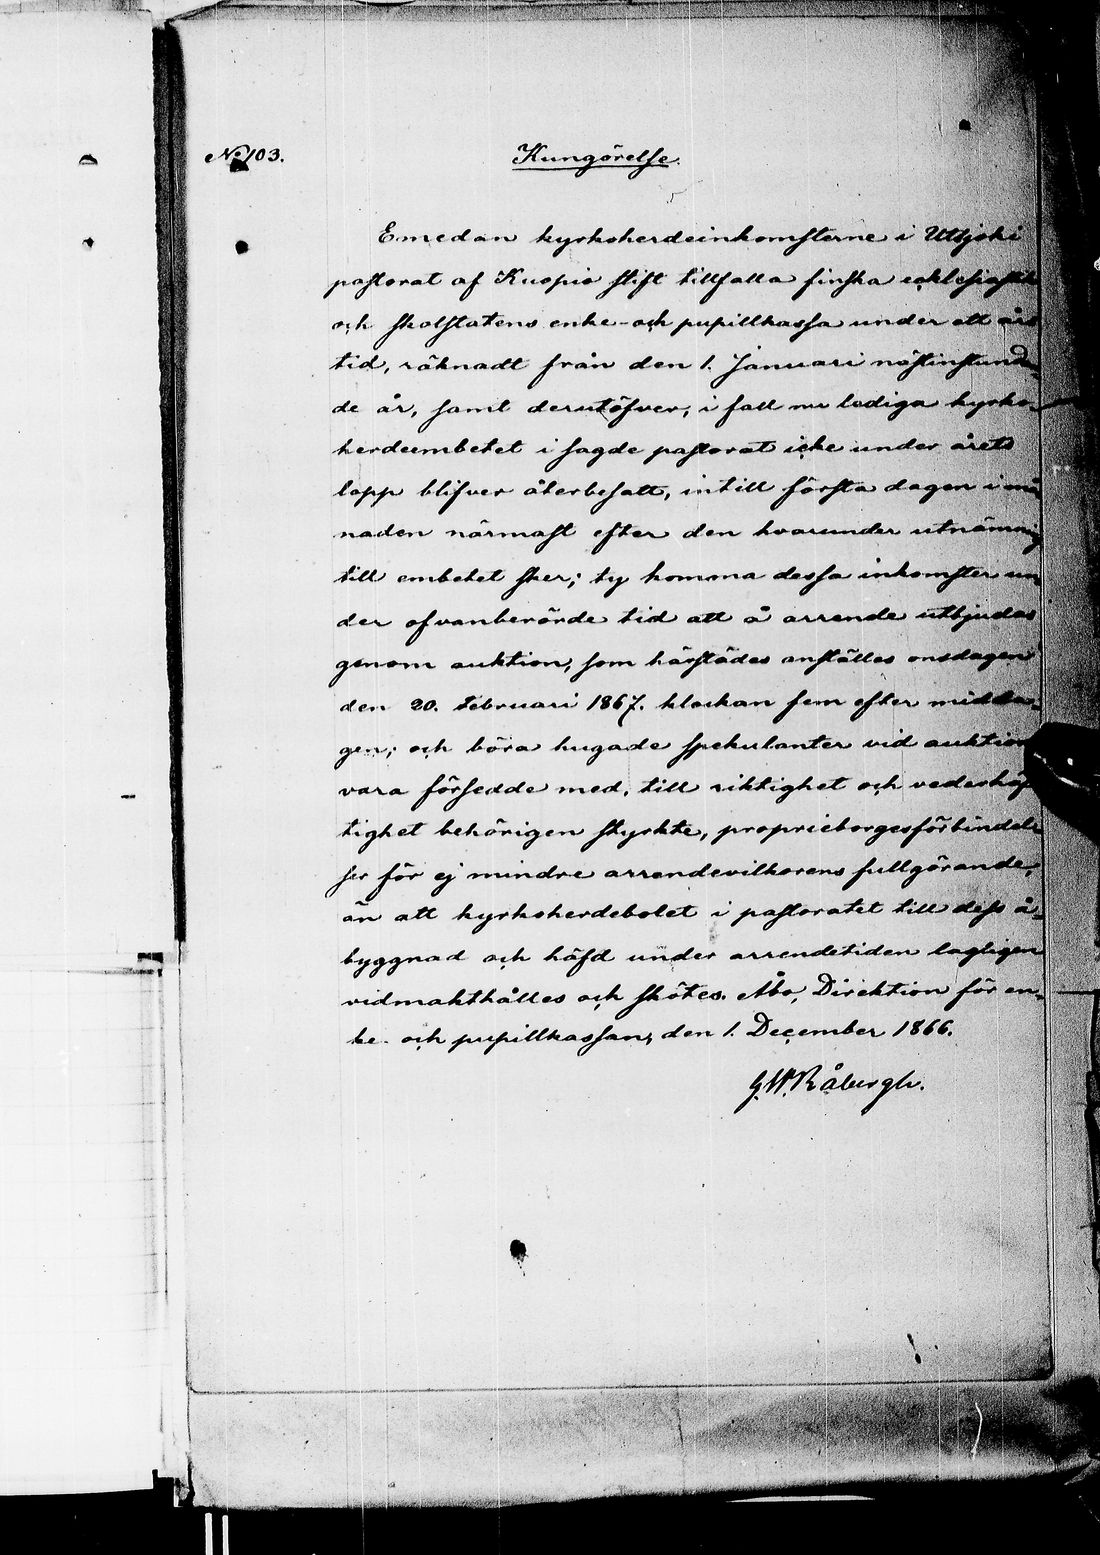 No 103.
Kungörelse.
Emedan kyrkoherdeinkomsterne i Utsjoki
pastorat af Kuopio stift tillfalla finska ecklesiastik
och skolstatens enke- och pupillkassa under ett års
tid, räknadt från den 1. Januari nästinstundan-
de år, samt derutöfver, i fall nu lediga kyrko-
herdeembetet i sagde pastorat icke under årets
lopp blifver återbesatt, intill första dagen i må
naden närmast efter den hvarunder utnämning
till embetet sker; ty komma dessa inkomster un
der ofvanberörde tid att å arrende utbjudas
genom auktion, som härstädes anställes onsdagen
den 20. Februari 1867. klockan fem efter midda-
gen; och böra hugade spekulanter vid auktion
vara försedde med, till riktighet och vederhäf
tighet behörigen styrkte, proprieborgesförbindel
ser för ej mindre arrendevilkorens fullgörande,
än att kyrkoherdebolet i pastoratet till dess å-
byggnad och häfd under arrendetiden lagligen
vidmakthålles och skötes. Åbo, Direktion för en-
ke- och pupillkassan, den 1. December 1866.
G. W. Råbergh.